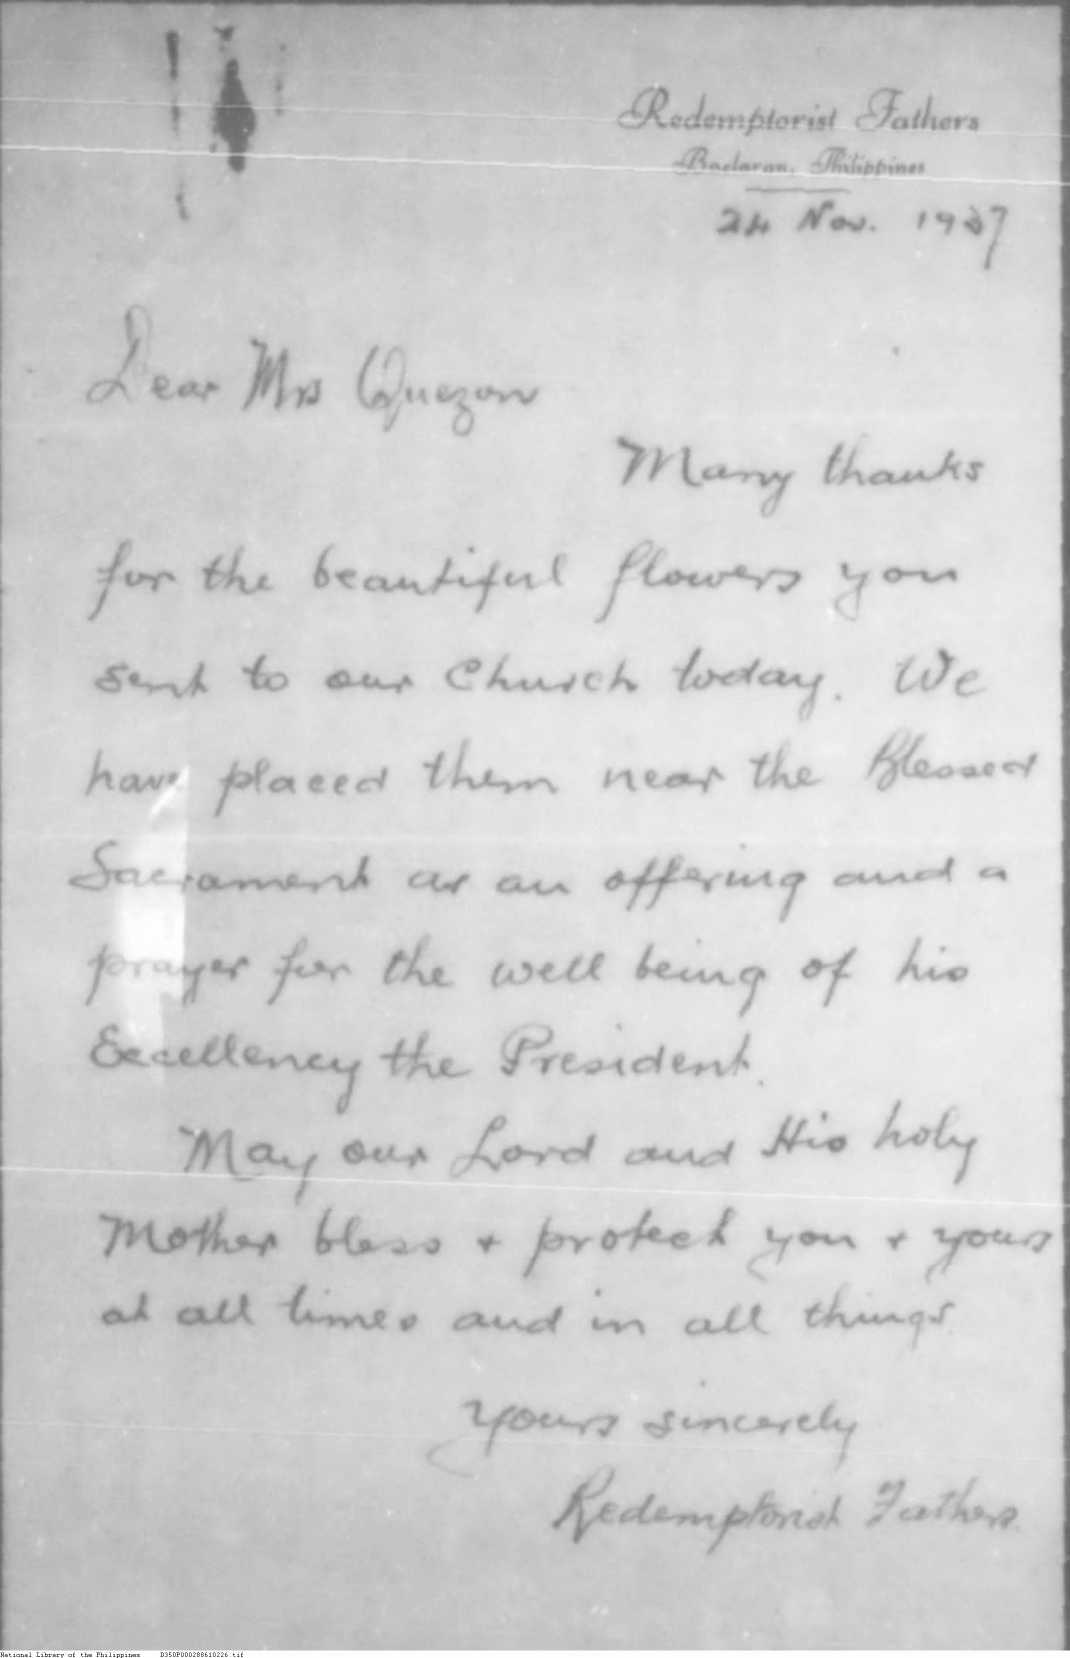 Redemptorist Fathers
Baclaran, Philippines
24 Nov. 1937
Dear Mrs Quezon
Many thanks
for the beautiful flowers you
sent to our Church today. We
have placed them near the Blessed
Sacrament as an offering and a
prayer for the well being of his
Excellency the President.
May our Lord and His holy
Mother bless + protect you + yours
at all times and in all things.
Yours sincerely
Redemptorist Fathers.
National Library of the Philippines D350P000288610226.tif